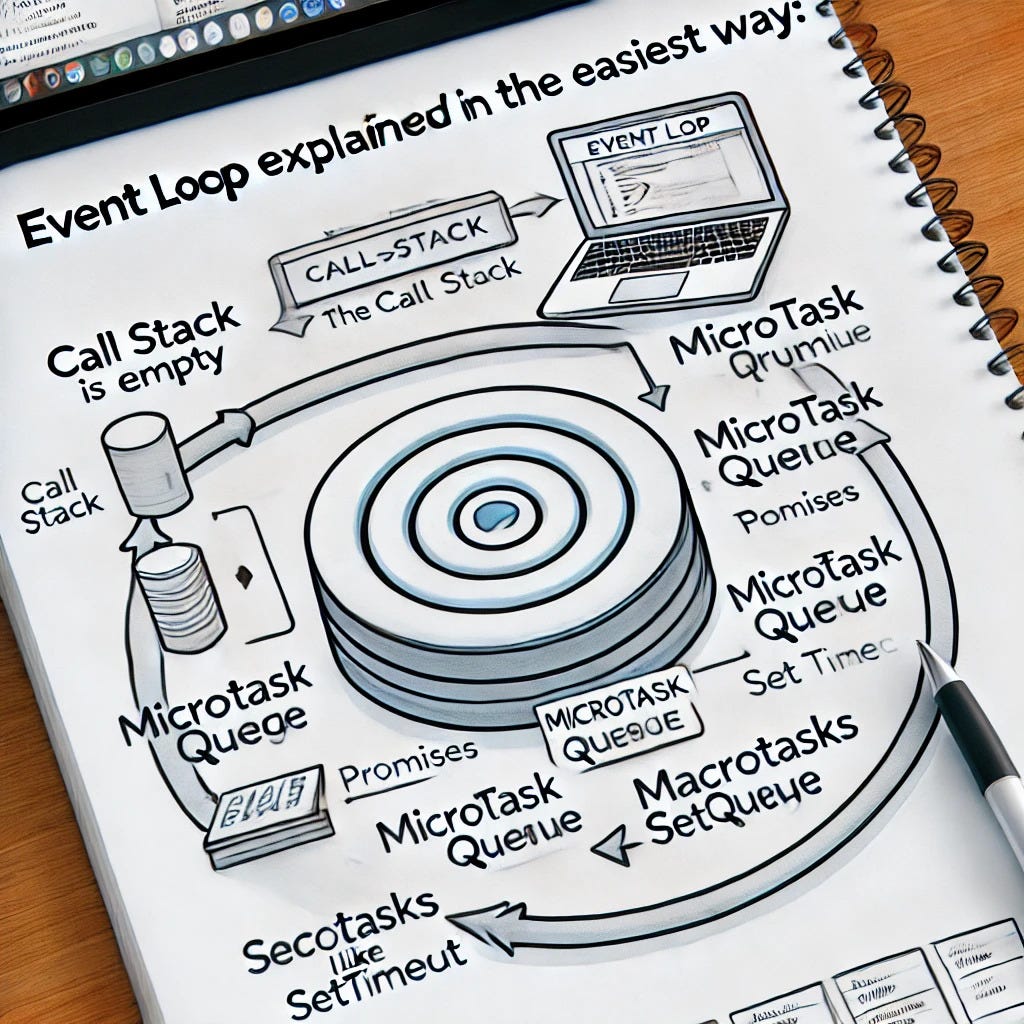 Event Loop explained in the easiest way:
EVENT LOP
CALL->STACK
The Call Stack
Call Stack
is empty
MicroTask
Qrumiue
Call
Stack
MicroTask
Querue
Pomises
MicroTask
Queue
Set Timec
Microtask
Quege
MICROTASK
QUEOUE
Promises
MicroTask
Querue
Macrotasks
SetQueye
Secotasks
like
SetTimeut